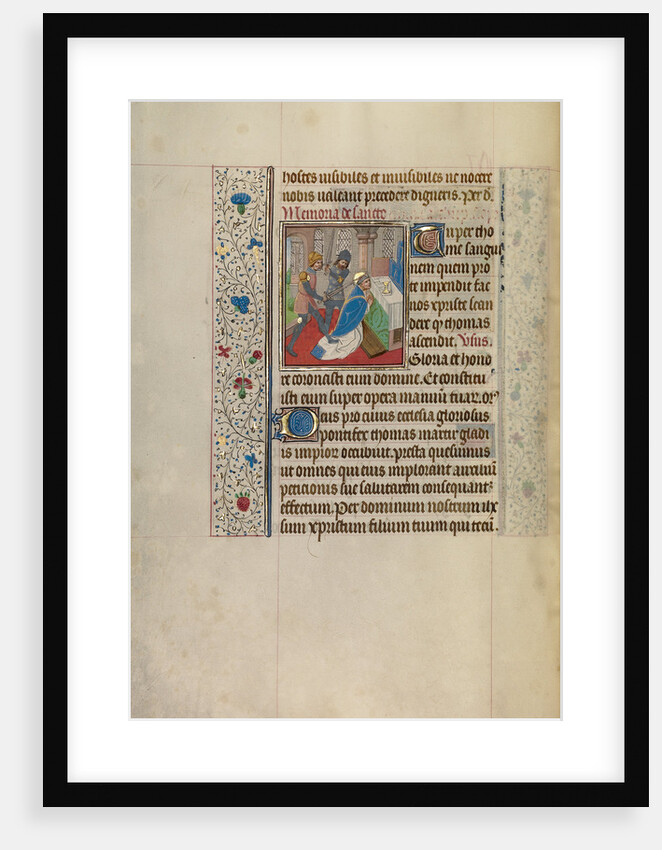 hostes uisibiles et inuisibiles ne nocere
nobis ualeant precedere digneris. Per d.
Memoria de sancto
Tu per tho
me sangui
nem quem pro
te impendit fac
nos xpriste scan
dere q̄ thomas
ascendit. Vsus.
Gloria et hono
re coronasti eum domine. Et constitu
isti eum super opera manuū tuar. or̄
Deus pro cuius ecclesia gloriosus
pontifex thomas martir gladi
is impior occubuit. presta quesumus
ut omnes qui eius implorant auxiliū
peticionis sue salutarem consequant᷑
effectum. Per dominum nostrum ihx
sum xpristum filium tuum qui tecū.